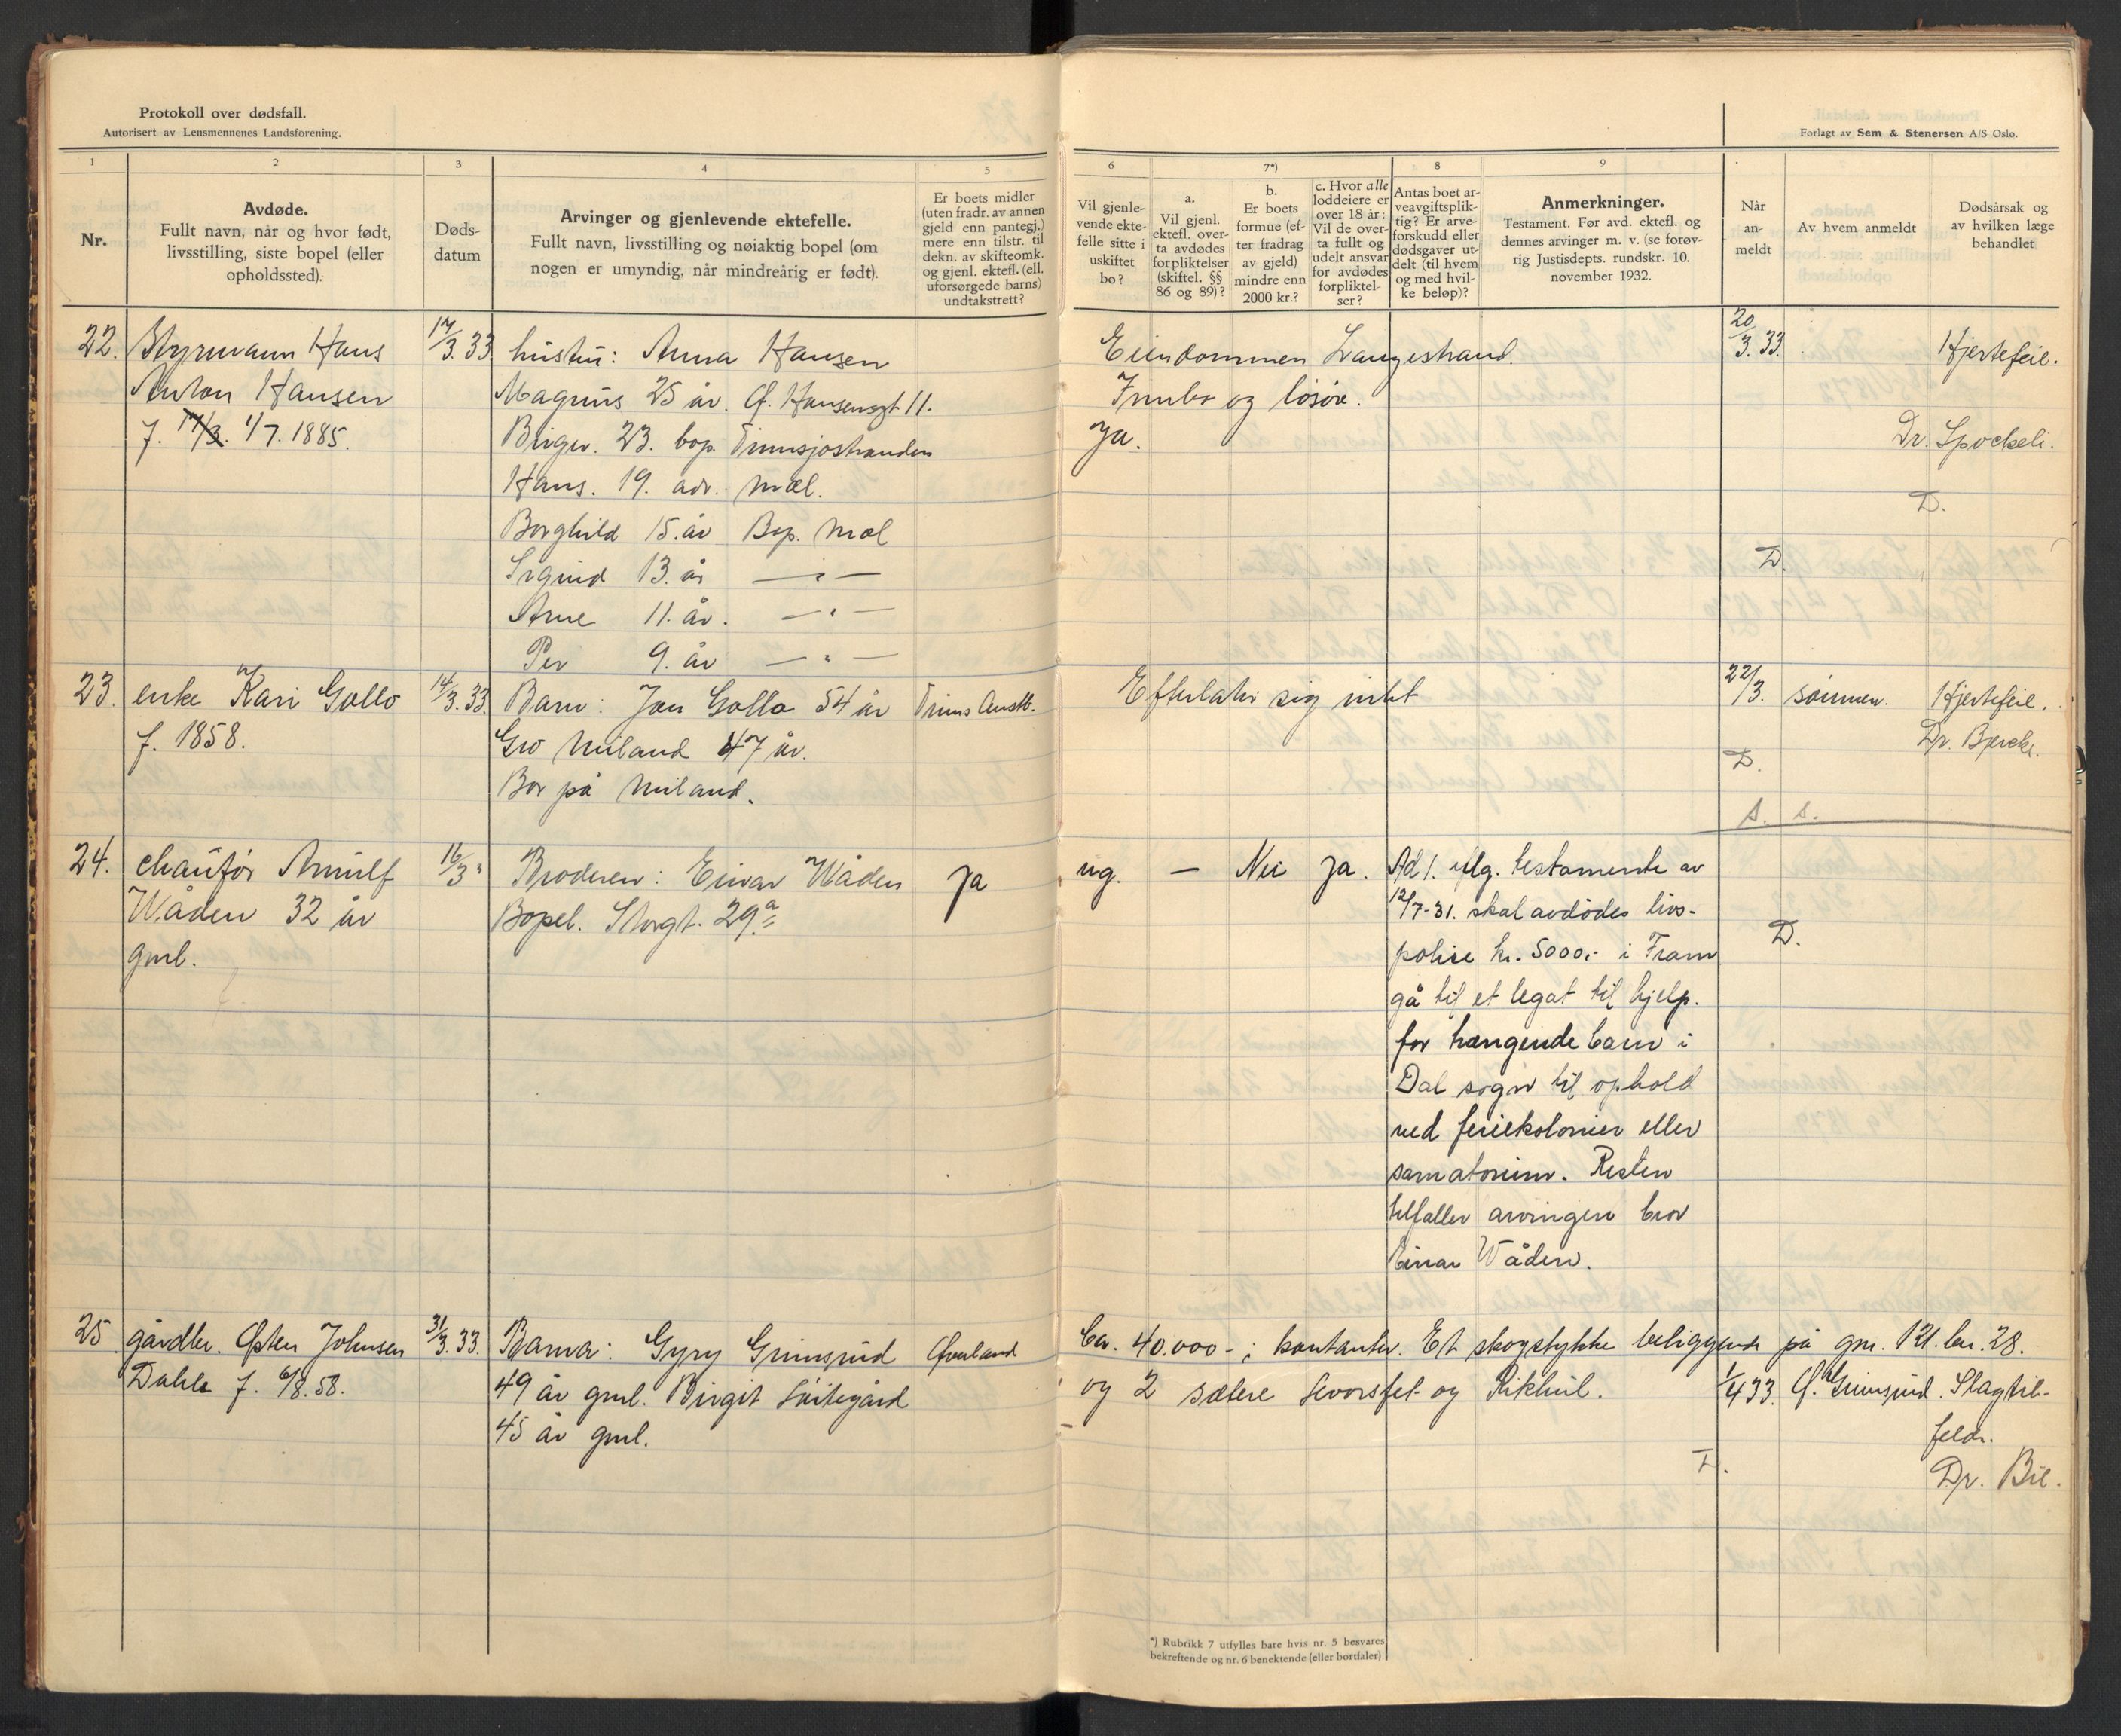 Protokoll over dødsfall.
Autorisert av Lensmennenes Landsforening.
Forlagt av Sem & Stenersen A/S Oslo.
1
2
3
4
5
6
7*)
8
9
Nr.
Avdøde.
Fullt navn, når og hvor født,
livsstilling, siste bopel (eller
opholdssted).
Døds-
datum
Arvinger og gjenlevende ektefelle.
Fullt navn, livsstilling og nøiaktig bopel (om
nogen er umyndig, når mindreårig er født).
Er boets midler
(uten fradr. av annen
gjeld enn pantegj.)
mere enn tilstr. til
dekn. av skifteomk.
og gjenl. ektef. (ell.
uforsørgede barns)
undtakstrett?
Vil gjenle-
vende ekte-
felle sitte i
uskiftet
bo?
a.
Vil gjenl.
ektefl. over-
ta avdødes
forpliktelser
(skiftel. §§
86 og 89)?
b.
Er boets
formue (ef-
ter fradrag
av gjeld)
mindre enn
2000 kr.?
c. Hvor alle
loddeiere er
over 18 år:
Vil de over-
ta fullt og
udelt ansvar
for avdødes
forpliktel-
ser?
Antas boet ar-
veavgiftsplik-
tig? Er arve-
forskudd eller
dødsgaver ut-
delt (til hvem
og med hvil-
ke beløp)?
Anmerkninger.
Testament. Før avd. ektefl. og
dennes arvinger m. v. (se forøv-
rig Justisdepts. rundskr. 10.
november 1932.
Når
an-
meldt
Av hvem anmeldt
Dødsårsak og
av hvilken læge
behandlet
22. Styrmann Hans 17/3.33 hustru: Anna Hansen Eiendommen Langestrand. 20/3.33. Hjertefeil.
Anton Hansen Magnus 25 år. O. Hansensgt 11. Innbo og løsøre.
f. 17/3. 1/7. 1885. Birger. 23. bop. Tinnsjøstranden Ja. Dr.
Hans. 19. adr. Mæl.
D.
Borghild 15. år Bop. Mæl
Sigrid 13. år — " — D.
Arne 11. år. — " —
Per 9. år — " —
23. enke Kari Gollo 14/3.33. Barn: Jon Gollo 54 år Tinns Austb. Efterlater sig intet 22/3. sønnen. Hjertefeil.
f. 1858. Gro Miland 47 år. Dr. Bjercke.
Bor på Miland. D.
24. chaufør Arnulf 16/3 " Broderen: Einar Wåden Ja ug. — Nei Ja. Ad 1. iflg. testamente av
Wåden 32 år Bopel. Storgt. 29a 12/7-31. skal avdødes livs-
D.
gml. polise kr. 5000,- i Fram
gå til et legat til hjelp.
for trængende barn i
Dal sogn til ophold
ved feriekolonier eller
sanatorium. Resten
tilfaller arvingen bror
Einar Wåden.
25 gårdbr. Østen Johnsen 31/3.33. Barna: Gyry Grimsrud Øverland Ca. 40.000 - i kontanter. Et skogstykke beliggende på gnr. 121. bnr. 28.
Dahle f. 6/8. 58. 49 år gml. Birgit og 2 sætere og 1/4 33. O. Grimsrud. Slagtil-
45 år gml. feldr.
Dr.
*) Rubrikk 7 utfylles bare hvis nr. 5 besvares
bekreftende og nr. 6 benektende (eller bortfaler)